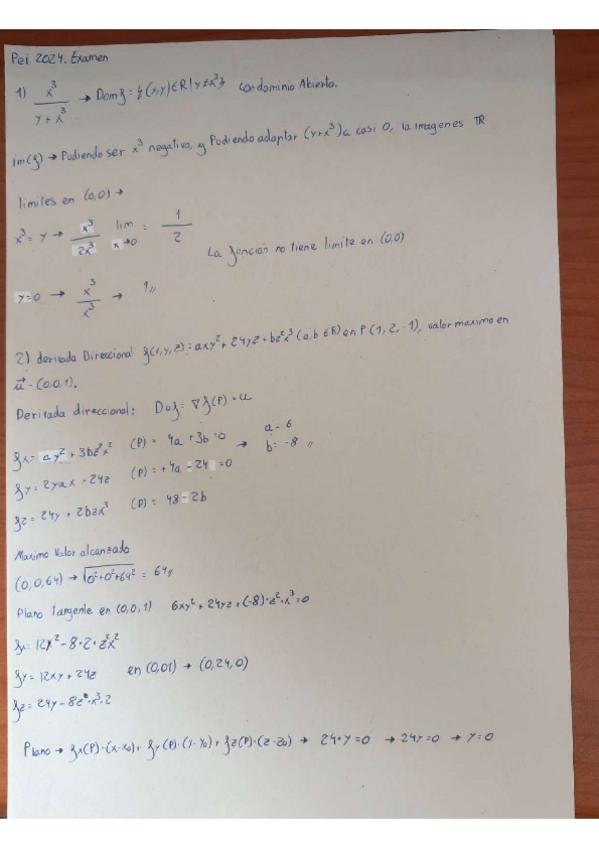 Pei 2024. Examen
1) x³ / (y + x³) → Dom f = {(x,y) ∈ R | y ≠ x³} con dominio Abierto.
im(f) → Pudiendo ser x³ negativa, y Pudiendo adaptar (y+x³) a casi 0, la imagen es R
limites en (0,0) →
x³ = y → x³ / 2x³ lim x→0 = 1 / 2
La función no tiene limite en (0,0)
y=0 → x³ / x³ → 1,,
2) derivada Direccional f(x,y,z) = axy² + 24yz + bz²x³ (a,b ∈ R) en P (1, 2, -1), valor maximo en
u⃗ = (0,0,1).
Derivada direccional: Duf = ∇f(P) · u
fx = ay² + 3bz²x² (P) = 4a + 3b = 0 → a = 6
fy = 2yax - 24z (P) = +4a - 24 = 0 b = -8,,
fz = 24y + 2bzx³ (P) = 48 - 2b
Maximo Valor alcanzado
(0,0,64) → √0²+0²+64² = 64,,
Plano tangente en (0,0,1) 6xy² + 24yz + (-8)·z²·x³ = 0
fx = 12x² - 8·2·z²x²
fy = 12xy + 24z en (0,01) → (0,24,0)
fz = 24y - 8z·x³·2
Plano → fx(P)·(x-x₀) + fy(P)·(y-y₀) + fz(P)·(z-z₀) → 24·y = 0 → 24y = 0 → y = 0